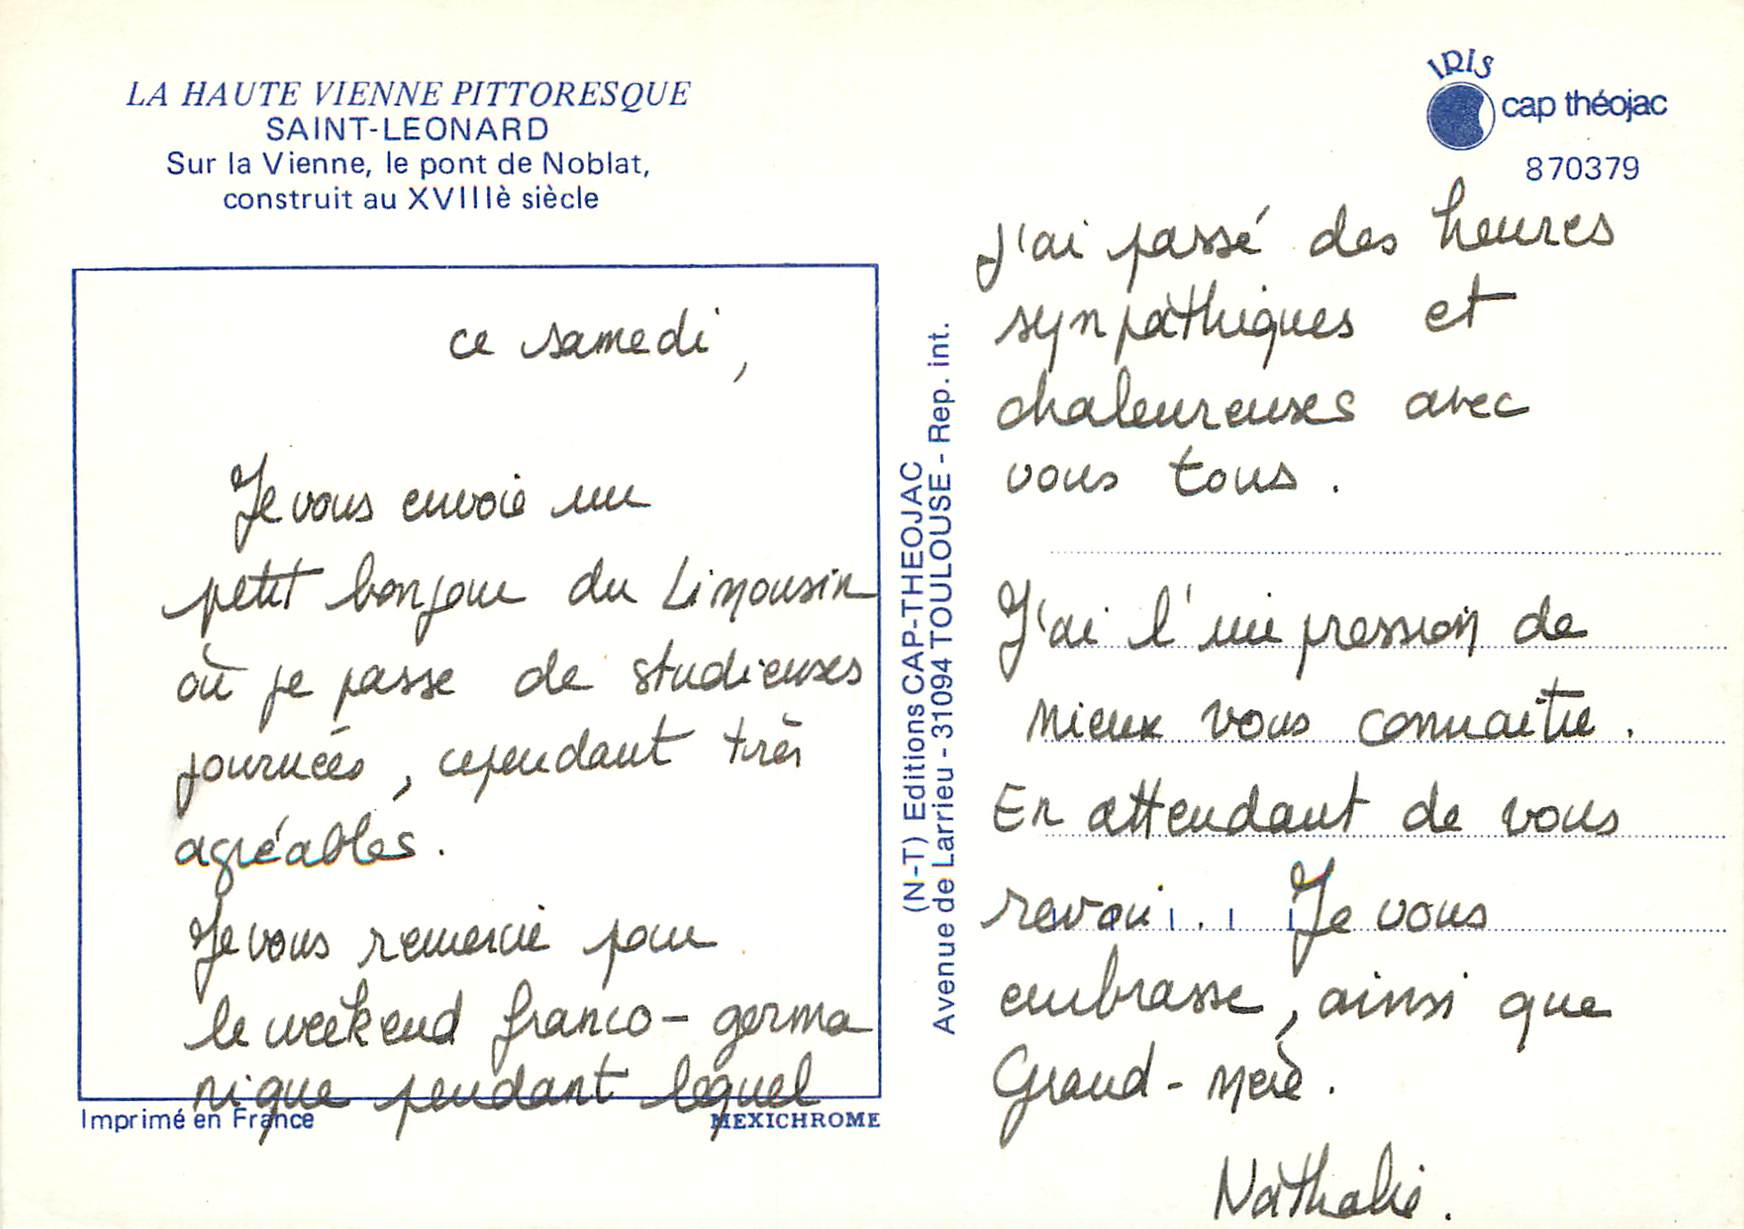 LA HAUTE VIENNE PITTORESQUE
SAINT-LEONARD
Sur la Vienne, le pont de Noblat,
construit au XVIIIè siècle
ce samedi,
Je vous envoie un
petit bonjour du Limousin
où je passe de studieuses
journées, cependant très
agréables.
Je vous remercie pour
le weekend franco-germa
nique pendant lequel
Imprimé en France
MEXICHROME
(N-T) Editions CAP-THEOJAC
Avenue de Larrieu - 31094 TOULOUSE - Rep. int.
IRIS
cap théojac
870379
J'ai passé des heures
sympathiques et
chaleureuses avec
vous tous.
J'ai l'impression de
mieux vous connaitre.
En attendant de vous
revoir. Je vous
embrasse, ainsi que
Grand-mère.
Nathalie.